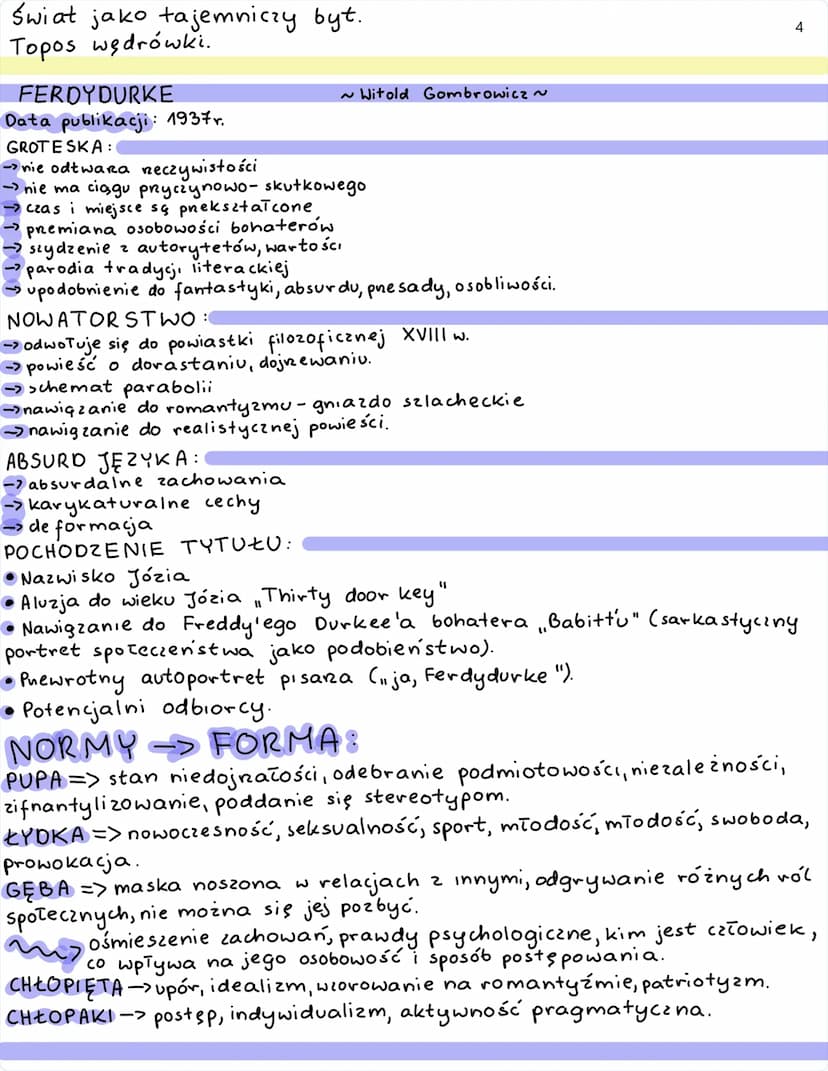 Świat jako tajemniczy byt.
4
Topos wędrówki.
FERDYDURKE ~ Witold Gombrowicz ~
Data publikacji: 1937r.
GROTESKA:
→ nie odtwarza rzeczywistości
→ nie ma ciągu przyczynowo-skutkowego
→ czas i miejsce są przekształcone
→ przemiana osobowości bohaterów
→ szydzenie z autorytetów, wartości
→ parodia tradycji literackiej
→ upodobnienie do fantastyki, absurdu, przesady, osobliwości.
NOWATORSTWO:
→ odwołuje się do powiastki filozoficznej XVIII w.
→ powieść o dorastaniu, dojrzewaniu.
→ schemat parabolii
→ nawiązanie do romantyzmu - gniazdo szlacheckie
→ nawiązanie do realistycznej powieści.
ABSURD JĘZYKA:
→ absurdalne zachowania
→ karykaturalne cechy
→ deformacja
POCHODZENIE TYTUŁU:
• Nazwisko Józia
• Aluzja do wieku Józia „Thirty door key"
• Nawiązanie do Freddy'ego Durkee'a bohatera „Babitt'u" (sarkastyczny
portret społeczeństwa jako podobieństwo).
• Przewrotny autoportret pisarza („ja, Ferdydurke").
• Potencjalni odbiorcy.
NORMY → FORMA:
PUPA => stan niedojrzałości, odebranie podmiotowości, niezależności,
zifnantylizowanie, poddanie się stereotypom.
ŁYDKA => nowoczesność, seksualność, sport, młodość, młodość, swoboda,
prowokacja.
GĘBA => maska noszona w relacjach z innymi, odgrywanie różnych ról
społecznych, nie można się jej pozbyć.
→ ośmieszenie zachowań, prawdy psychologiczne, kim jest człowiek,
co wpływa na jego osobowość i sposób postępowania.
CHŁOPIĘTA → upór, idealizm, wzorowanie na romantyźmie, patriotyzm.
CHŁOPAKI → postęp, indywidualizm, aktywność pragmatyczna.